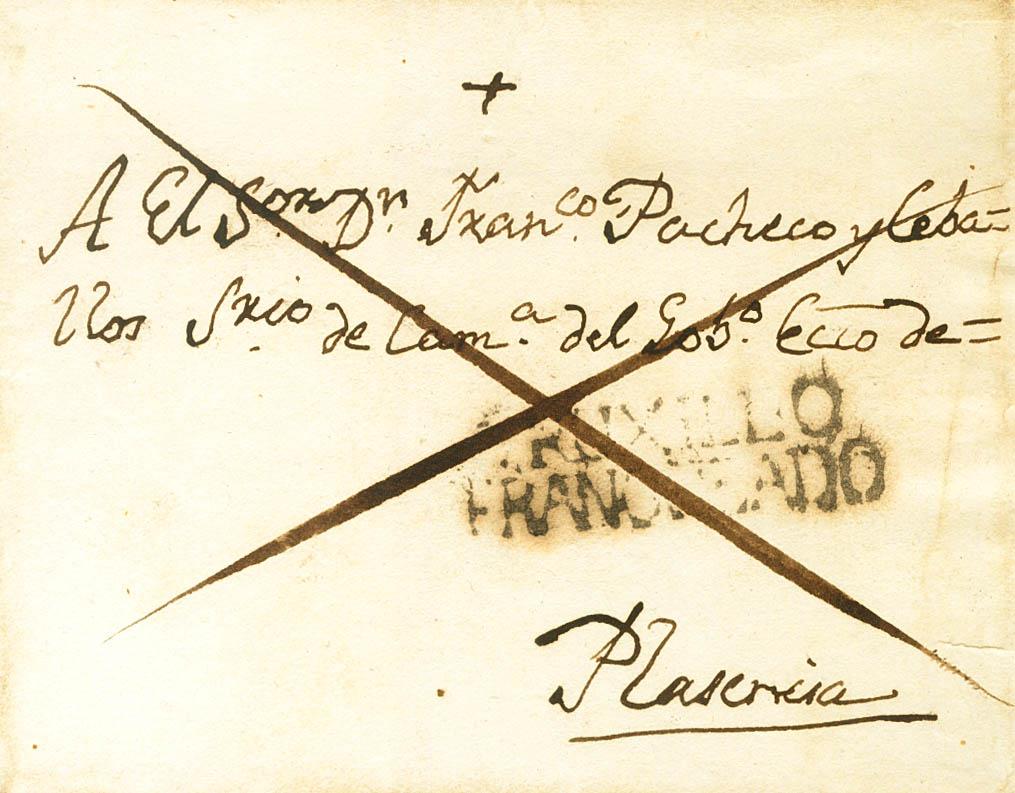 +
A El Sor. Dn. Franco. Pacheco y Ceba=
llos Srio. de Cama. del Gobo. Ecco de=
TRUXILLO
FRANQUEADO
Plasencia